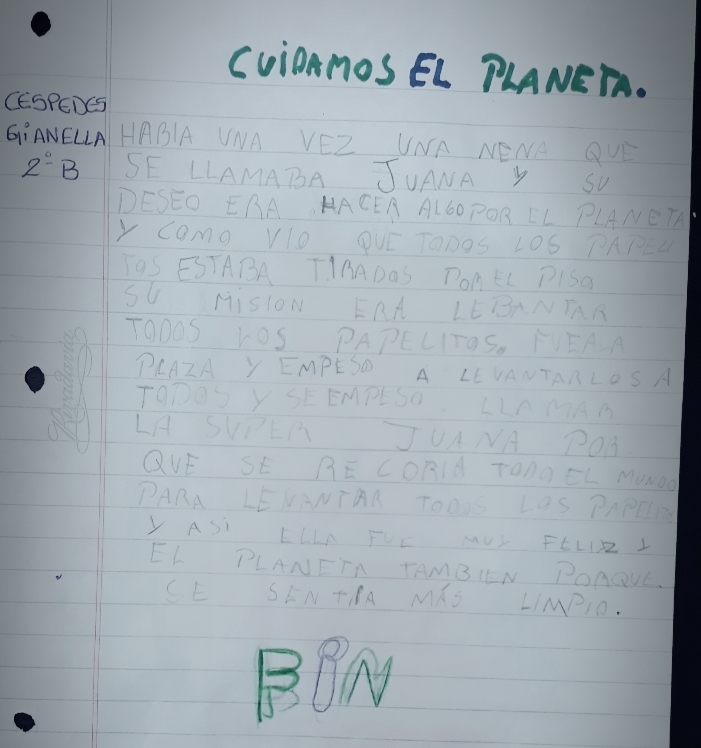 CUIDAMOS EL PLANETA.
CESPEDES
GIANELLA
2º B
HABIA UNA VEZ UNA NENA QUE
SE LLAMABA JUANA Y SU
DESEO ERA HACER ALGO POR EL PLANETA
Y COMO VIO QUE TODOS LOS PAPELI
TOS ESTABA TIRADOS POR EL PISO
SU MISION ERA LEBANTAR
TODOS LOS PAPELITOS. FUE A LA
PLAZA Y EMPESO A LEVANTARLOS A
TODOS Y SE EMPESO LLAMAR
LA SUPER JUANA POR
QUE SE RECORIA TODO EL MUNDO
PARA LEVANTAR TODOS LOS PAPELITO
Y ASI ELLA FUE MUY FELIZ Y
EL PLANETA TAMBIEN PORQUE.
SE SENTIA MÁS LIMPIO.
FIN
Rivadavia